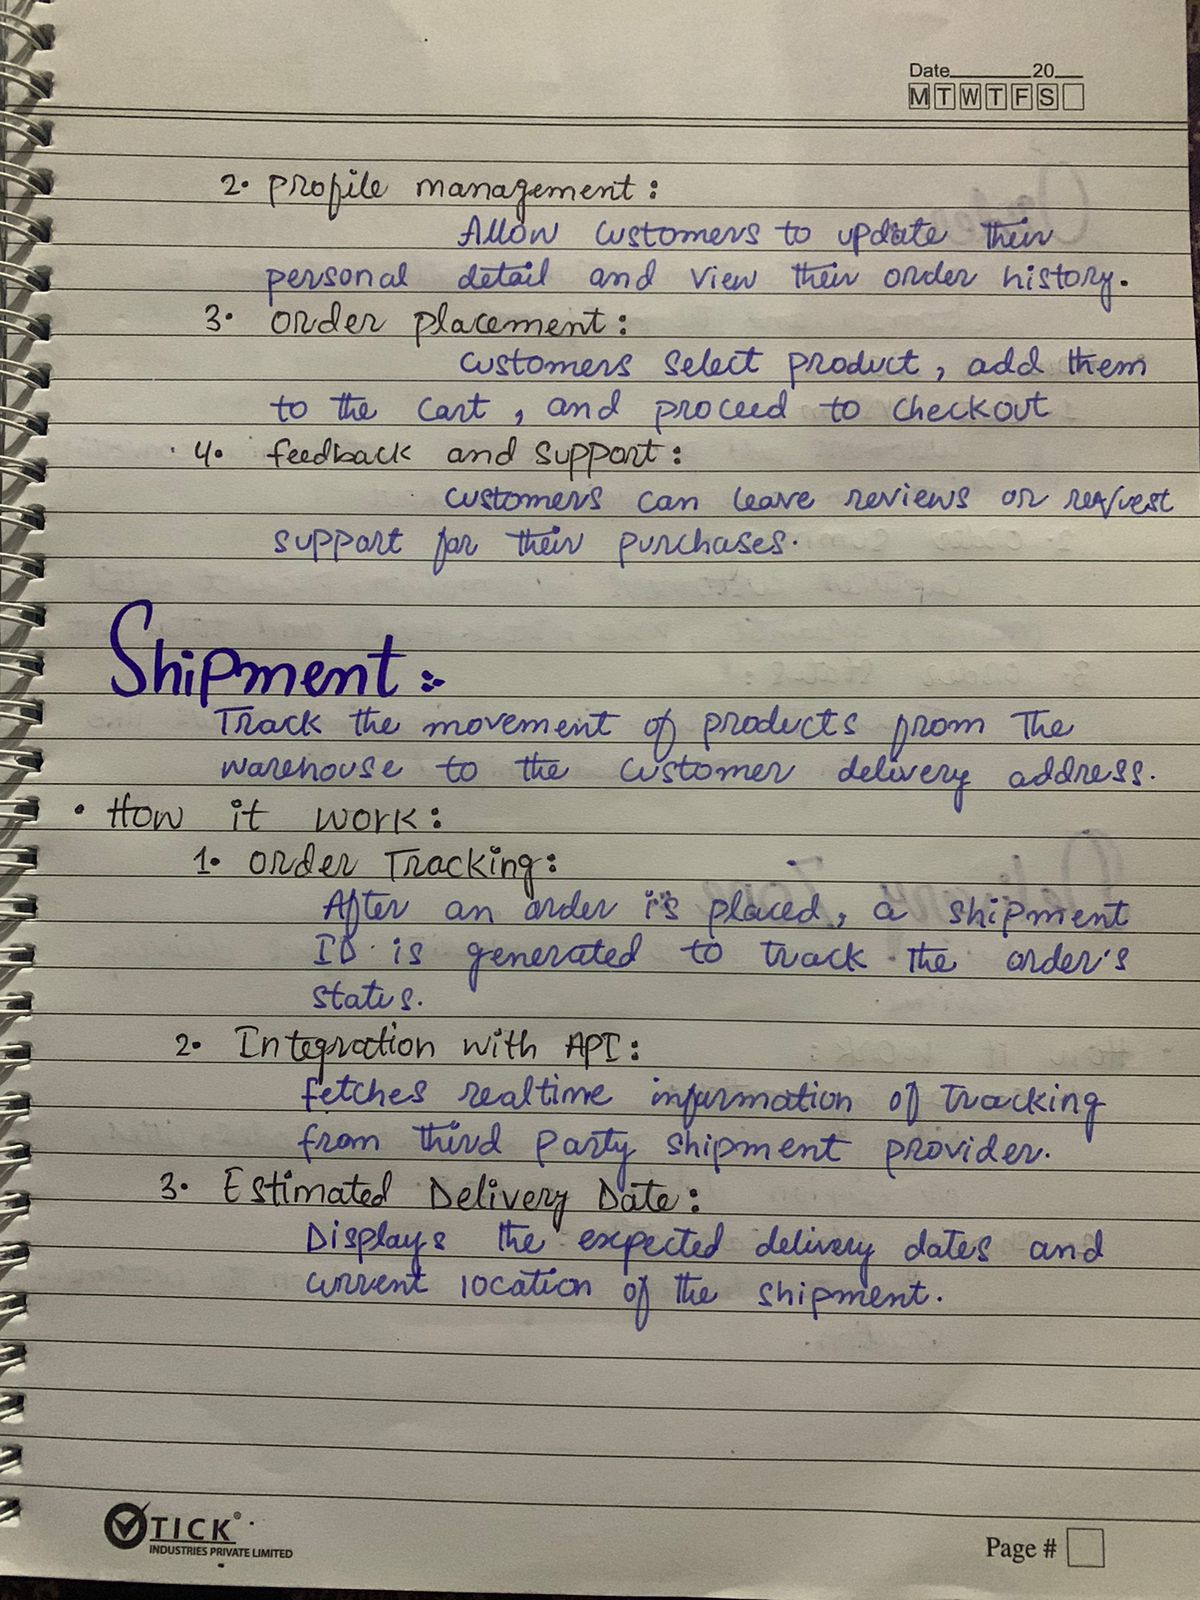 Date 20
M T W T F S
2. profile management:
Allow customers to update their
personal detail and view their order history.
3. order placement:
customers select product, add them
to the cart, and proceed to checkout
4. feedback and support:
customers can leave reviews or request
support for their purchases.
Shipment:-
Track the movement of products from The
warehouse to the customer delivery address.
• How it work:
1. order Tracking:
After an order is placed, a shipment
ID is generated to track the order's
status.
2. Integration with API:
fetches realtime information of tracking
from third party shipment provider.
3. Estimated Delivery Date:
Displays the expected delivery dates and
current location of the shipment.
TICK®
INDUSTRIES PRIVATE LIMITED
Page #